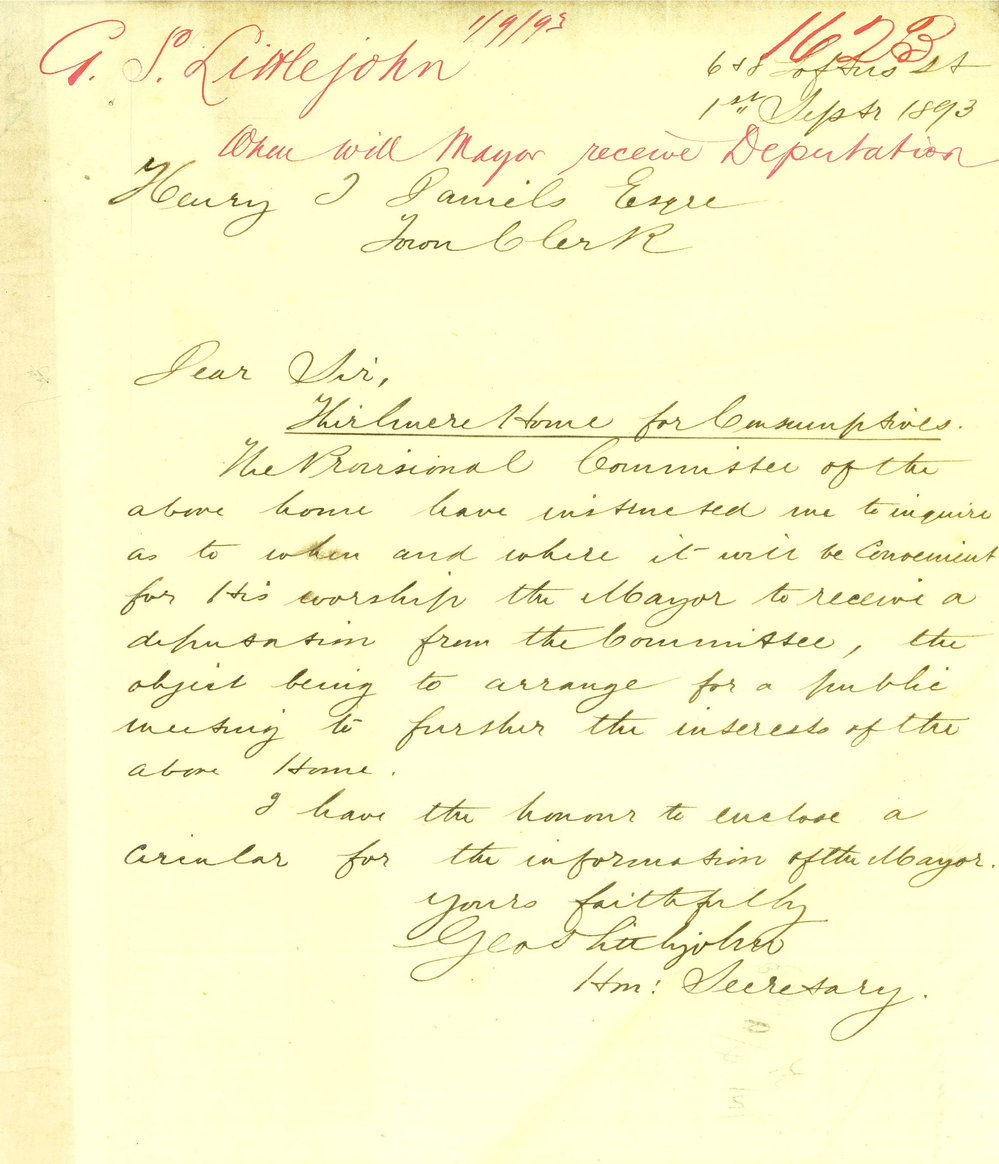 G. S. Littlejohn 1/9/93
1623
6 & 8 Loftus St
1st Septr 1893
When will Mayor receive Deputation
Henry J Daniels Esqre
Town Clerk
Dear Sir,
Thirlmere Home for Consumptives.
The Provisional Committee of the
above home have instructed me to inquire
as to when and where it will be convenient
for His worship the Mayor to receive a
deputation from the Committee, the
object being to arrange for a public
meeting to further the interests of the
above Home.
I have the honour to enclose a
circular for the information of the Mayor.
yours faithfully
Geo S Littlejohn
Hon: Secretary.